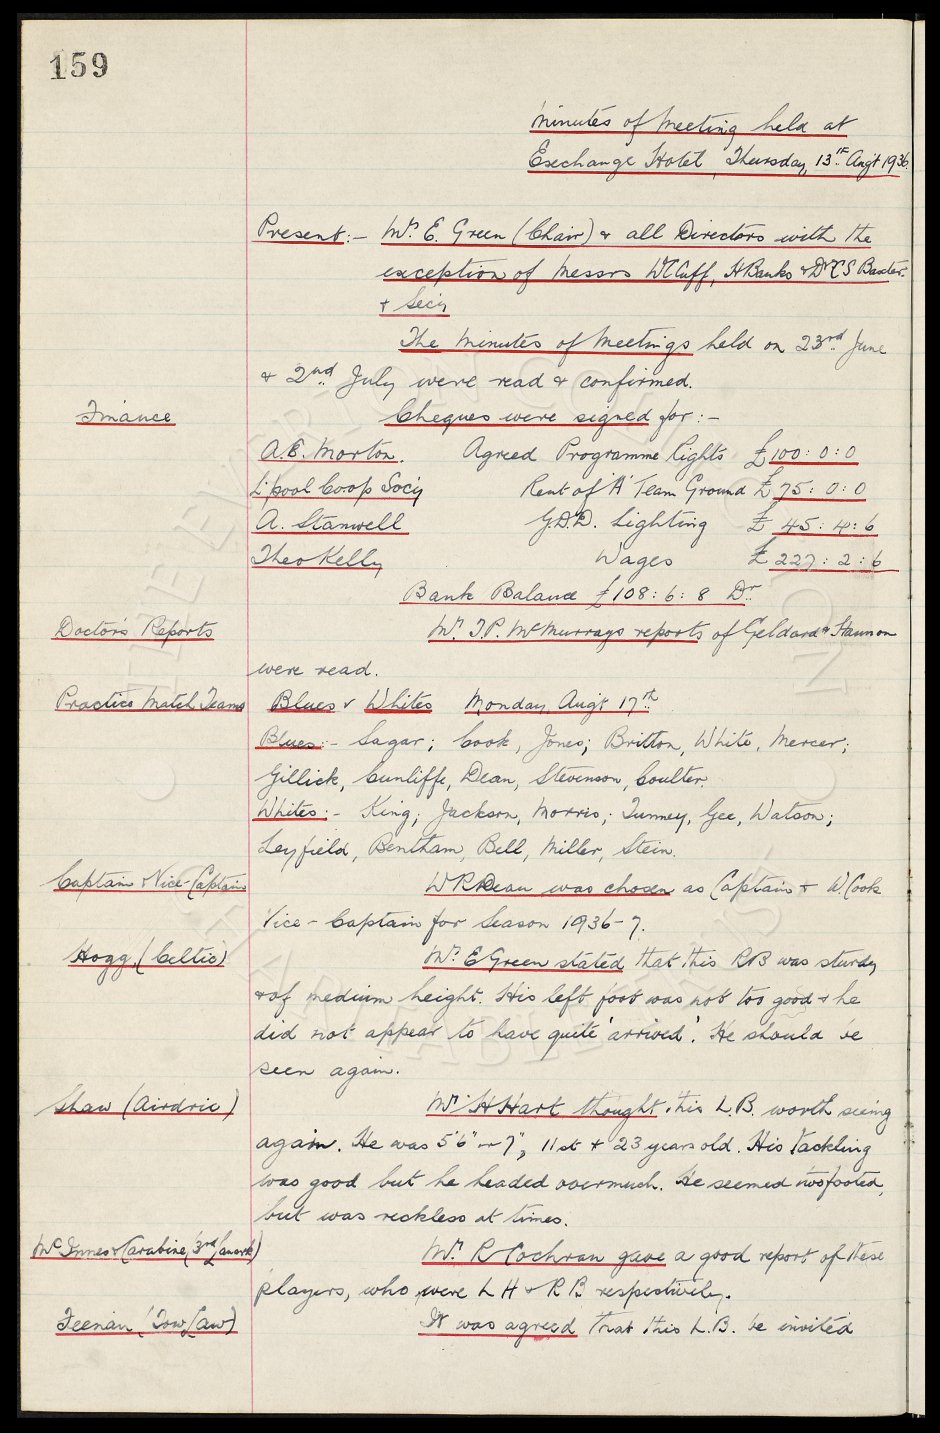 159
Minutes of Meeting held at
Exchange Hotel, Thursday, 13th Aug't 1936.
Present:- Mr. E. Green (Chair) & all Directors with the
exception of Messrs W C Cuff, H Banks & Dr C S Baxter.
+ Secy
The Minutes of Meetings held on 23rd June
& 2nd July were read & confirmed.
Finance Cheques were signed for:-
A.E. Morton. Agreed Programme Rights £100:0:0
L'pool Coop Socy Rent of 'A' Team Ground £75:0:0
A. Stanwell G.D.D. Lighting £45:4:6
Theo Kelly Wages £227:2:6
Bank Balance £108:6:8 Dr.
Doctor's Reports Mr. T.P. McMurrays reports of Geldard & Hannon
were read.
Practice Match Teams Blues v Whites Monday Aug't 17th
Blues:- Sagar; Cook, Jones; Britton, White, Mercer;
Gillick, Cunliffe, Dean, Stevenson, Coulter.
Whites:- King; Jackson, Morris; Tunney, Gee, Watson;
Leyfield, Bentham, Bell, Miller, Stein.
Captain & Vice-Captain W R Dean was chosen as Captain & W. Cook
Vice-Captain for Season 1936-7.
Hogg, (Celtic) Mr. E Green stated that this RB was sturdy
& of medium height. His left foot was not too good & he
did not appear to have quite 'arrived'. He should be
seen again.
Shaw (Airdrie) Mr. H Hart thought this L.B. worth seeing
again. He was 5'6" or 7", 11st & 23 years old. His tackling
was good but he headed overmuch. He seemed twofooted,
but was reckless at times.
McInnes & Carabine, (3rd Lanark) Mr. R Cochran gave a good report of these
players, who were L H & R B respectively.
Feenan (Tow Law) It was agreed that this L.B. be invited